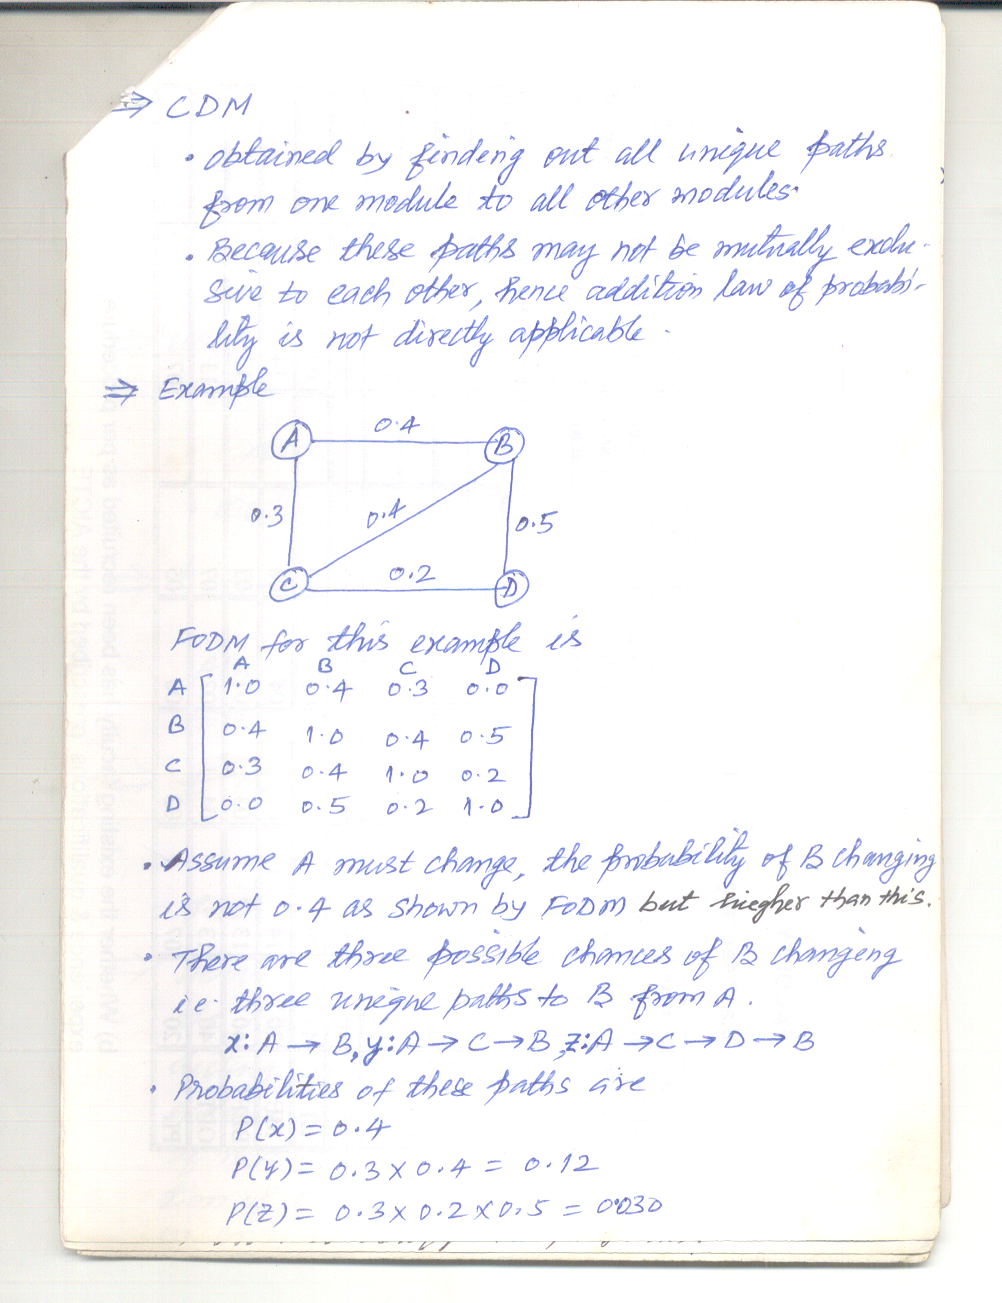 ⇒ CDM
• obtained by finding out all unique paths
from one module to all other modules.
• Because these paths may not be mutually exclu-
sive to each other, hence addition law of probabi-
lity is not directly applicable.
⇒ Example
A 0.4 B
0.3 0.4 0.5
C 0.2 D
FODM for this example is
A B C D
A 1.0 0.4 0.3 0.0
B 0.4 1.0 0.4 0.5
C 0.3 0.4 1.0 0.2
D 0.0 0.5 0.2 1.0
• Assume A must change, the probability of B changing
is not 0.4 as shown by FODM but hiegher than this.
• There are three possible chances of B changing
i.e. three unique paths to B from A.
x: A → B, y: A → C → B, z: A → C → D → B
• Probabilities of these paths are
P(x) = 0.4
P(y) = 0.3 x 0.4 = 0.12
P(z) = 0.3 x 0.2 x 0.5 = 0.030